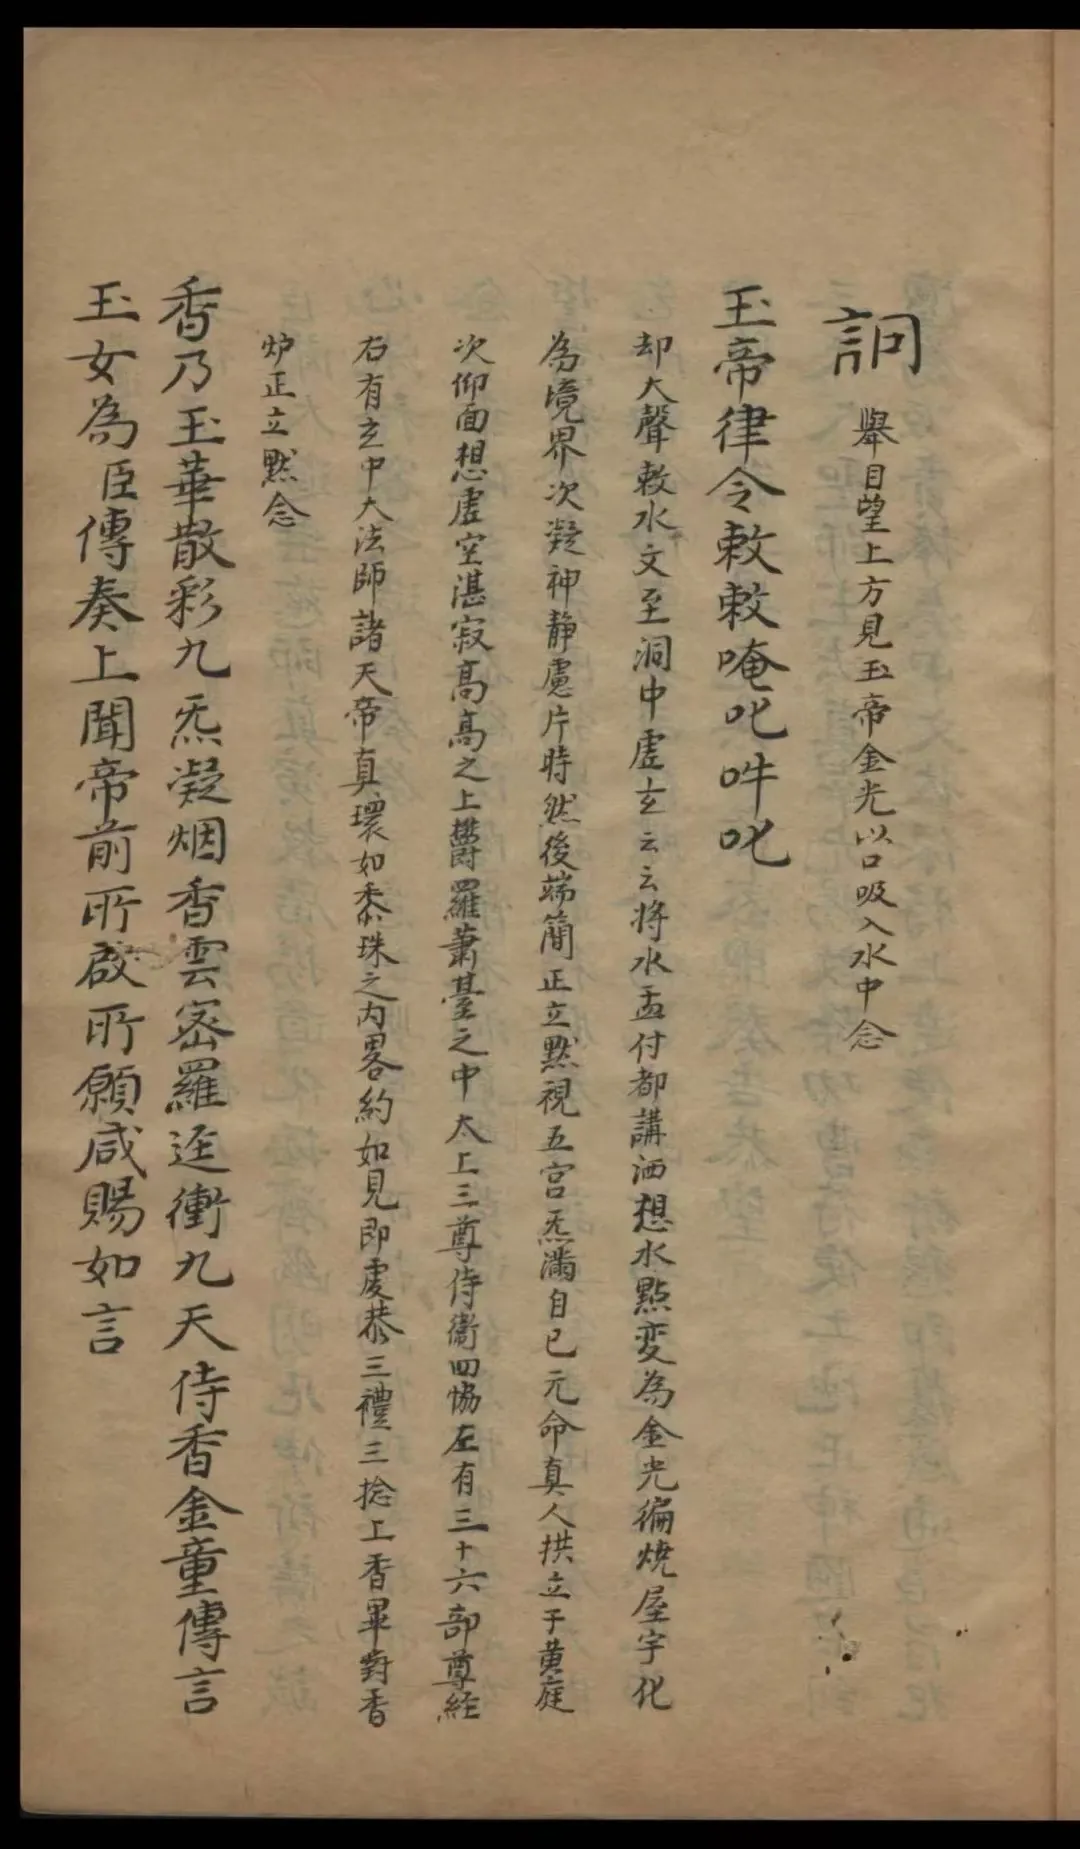 訶 舉目望上方見玉帝金光以口吸入水中念
玉帝律令敕敕唵吒吽吒
却大聲敕水文至洞中虛玄云云將水盂付都講洒想水點变為金光徧燒屋宇化
為境界次凝神静慮片時然後端簡正立默視五宫炁滿自己元命真人拱立于黄庭
次仰面想虛空湛寂高高之上欝羅蕭臺之中太上三尊侍衞四恊左有三十六部尊經
右有玄中大法師諸天帝真環如黍珠之内畧約如見即虔恭三禮三捻上香畢對香
炉正立默念
香乃玉華散彩九炁凝烟香雲宻羅逕衝九天侍香金童傳言
玉女為臣傳奏上聞帝前所啟所願咸賜如言